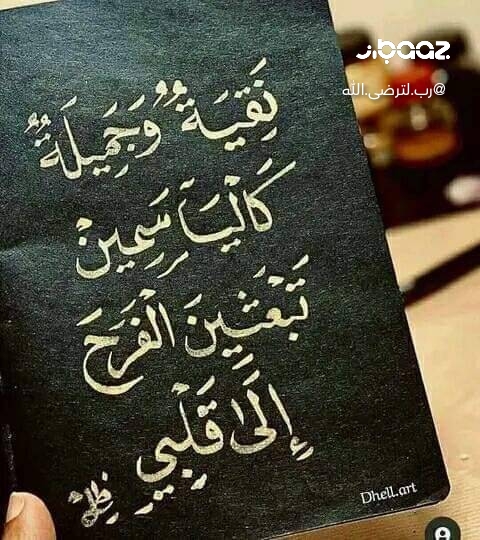 baaz.
@رب.لترضى.الله
نَقِيَةٌ وَجَمِيلَةٌ
كَاليَاسَمِينْ
تَبْعَثِينَ الْفَرَحَ
إِلَىٰ قَلْبِي
ظل
Dhell.art